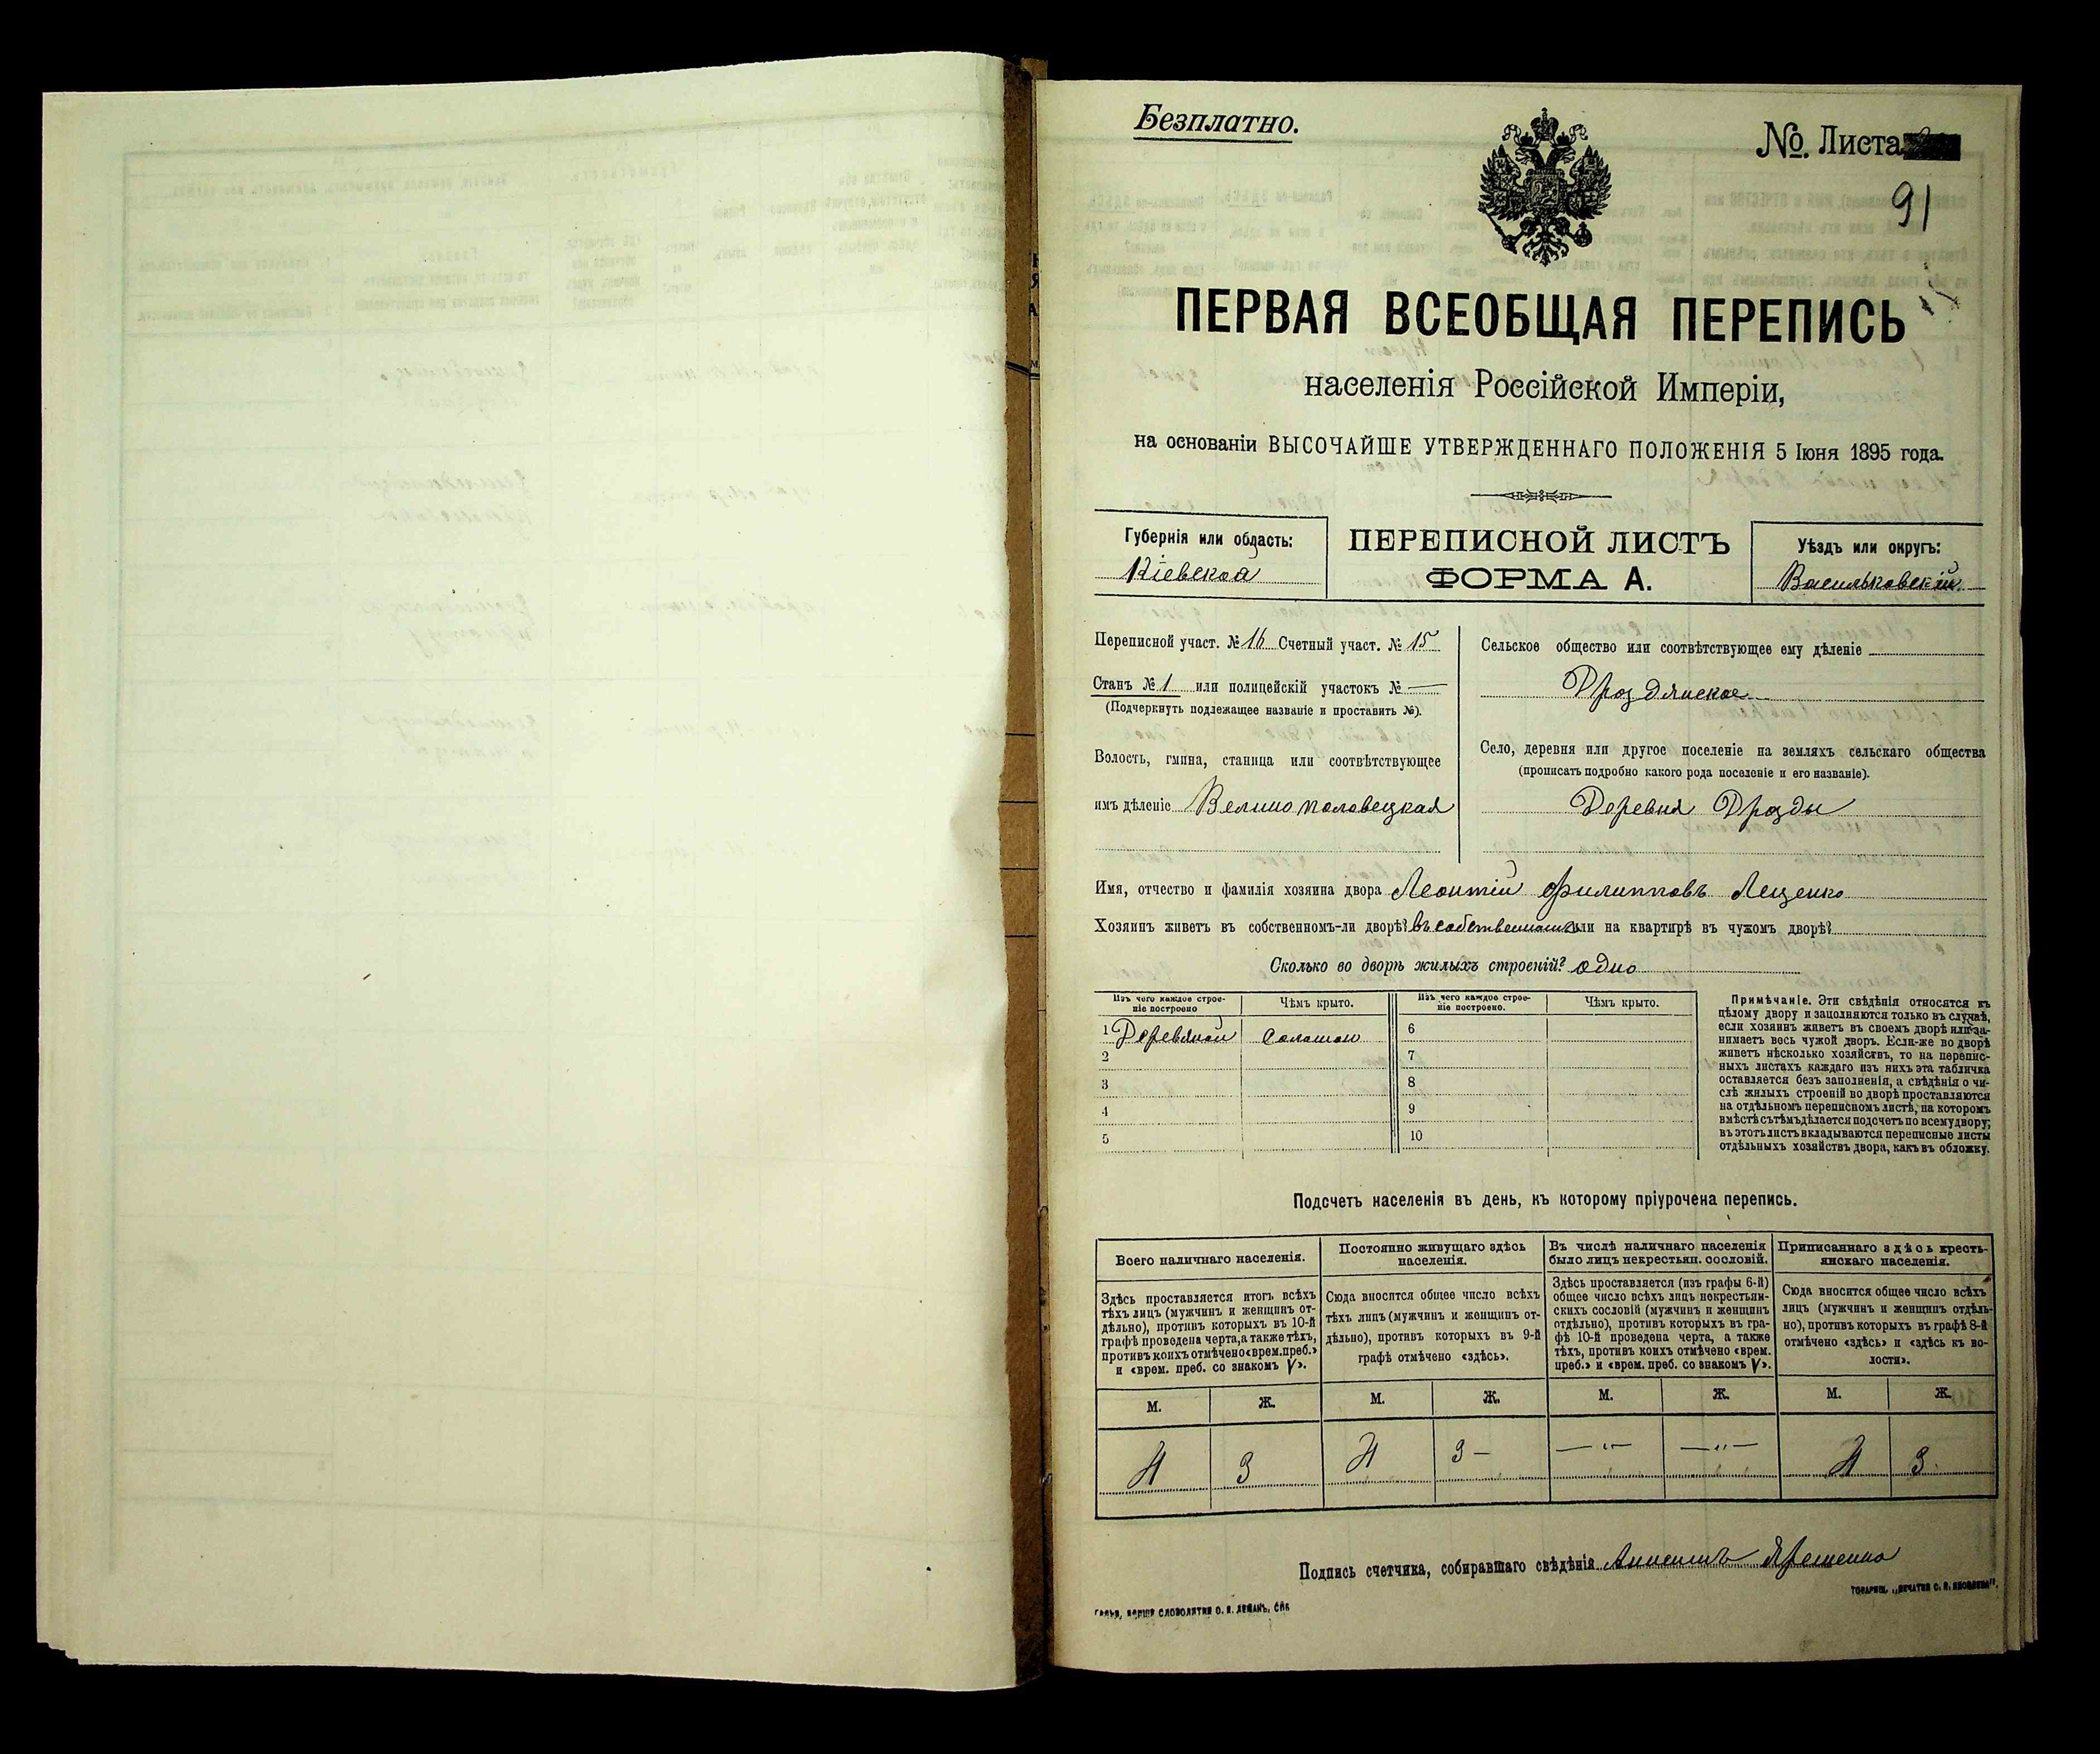 Безплатно.
№. Листа
91
ПЕРВАЯ ВСЕОБЩАЯ ПЕРЕПИСЬ
населенія Россійской Имперіи,
на основаніи ВЫСОЧАЙШЕ УТВЕРЖДЕННАГО ПОЛОЖЕНІЯ 5 Іюня 1895 года.
Губернія или область:
Кіевская
ПЕРЕПИСНОЙ ЛИСТЪ
ФОРМА А.
Уѣздъ или округъ:
Васильковскій
Переписной участ. № 16 Счетный участ. № 15
Станъ № 1 или полицейскій участокъ № —
(Подчеркнуть подлежащее названіе и проставить №).
Волость, гмина, станица или соотвѣтствующее
имъ дѣленіе Великополовецкая
Сельское общество или соотвѣтствующее ему дѣленіе
Дроздянское
Село, деревня или другое поселеніе на земляхъ сельскаго общества
(прописать подробно какого рода поселеніе и его названіе).
Деревня Дрозды
Имя, отчество и фамилія хозяина двора Леонтій Филипповъ Лещенко
Хозяинъ живетъ въ собственномъ-ли дворѣ? въ собственномъ или на квартирѣ въ чужомъ дворѣ?
Сколько во дворѣ жилыхъ строеній? одно
Изъ чего каждое строе-
ніе построено
Чѣмъ крыто.
Изъ чего каждое строе-
ніе построено.
Чѣмъ крыто.
1 Деревяной соломою
2
3
4
5
6
7
8
9
10
Примѣчаніе. Эти свѣдѣнія относятся къ
цѣлому двору и заполняются только въ случаѣ,
если хозяинъ живетъ въ своемъ дворѣ или за-
нимаетъ весь чужой дворъ. Если-же во дворѣ
живетъ нѣсколько хозяйствъ, то на перепис-
ныхъ листахъ каждаго изъ нихъ эта табличка
оставляется безъ заполненія, а свѣдѣнія о чи-
слѣ жилыхъ строеній во дворѣ проставляются
на отдѣльномъ переписномъ листѣ, на которомъ
вмѣстѣ съ тѣмъ дѣлается подсчетъ по всему двору;
въ этотъ листъ вкладываются переписные листы
отдѣльныхъ хозяйствъ двора, какъ въ обложку.
Подсчетъ населенія въ день, къ которому пріурочена перепись.
Всего наличнаго населенія.
Постоянно живущаго здѣсь
населенія.
Въ числѣ наличнаго населенія
было лицъ некрестьян. сословій.
Приписаннаго здѣсь кресть-
янскаго населенія.
Здѣсь проставляется итогъ всѣхъ
тѣхъ лицъ (мужчинъ и женщинъ от-
дѣльно), противъ которыхъ въ 10-й
графѣ проведена черта, а также тѣхъ,
противъ коихъ отмѣчено «врем. преб.»
и «врем. преб. со знакомъ V».
Сюда вносится общее число всѣхъ
тѣхъ лицъ (мужчинъ и женщинъ от-
дѣльно), противъ которыхъ въ 9-й
графѣ отмѣчено «здѣсь».
Здѣсь проставляется (изъ графы 6-й)
общее число всѣхъ лицъ некрестьян-
скихъ сословій (мужчинъ и женщинъ
отдѣльно), противъ которыхъ въ гра-
фѣ 10-й проведена черта, а также
тѣхъ, противъ коихъ отмѣчено «врем.
преб.» и «врем. преб. со знакомъ V».
Сюда вносится общее число всѣхъ
лицъ (мужчинъ и женщинъ отдѣль-
но), противъ которыхъ въ графѣ 8-й
отмѣчено «здѣсь» и «здѣсь къ во-
лости».
М. Ж. М. Ж. М. Ж. М. Ж.
4 3 4 3 — —"— —"— 4 3
Подпись счетчика, собиравшаго свѣдѣнія